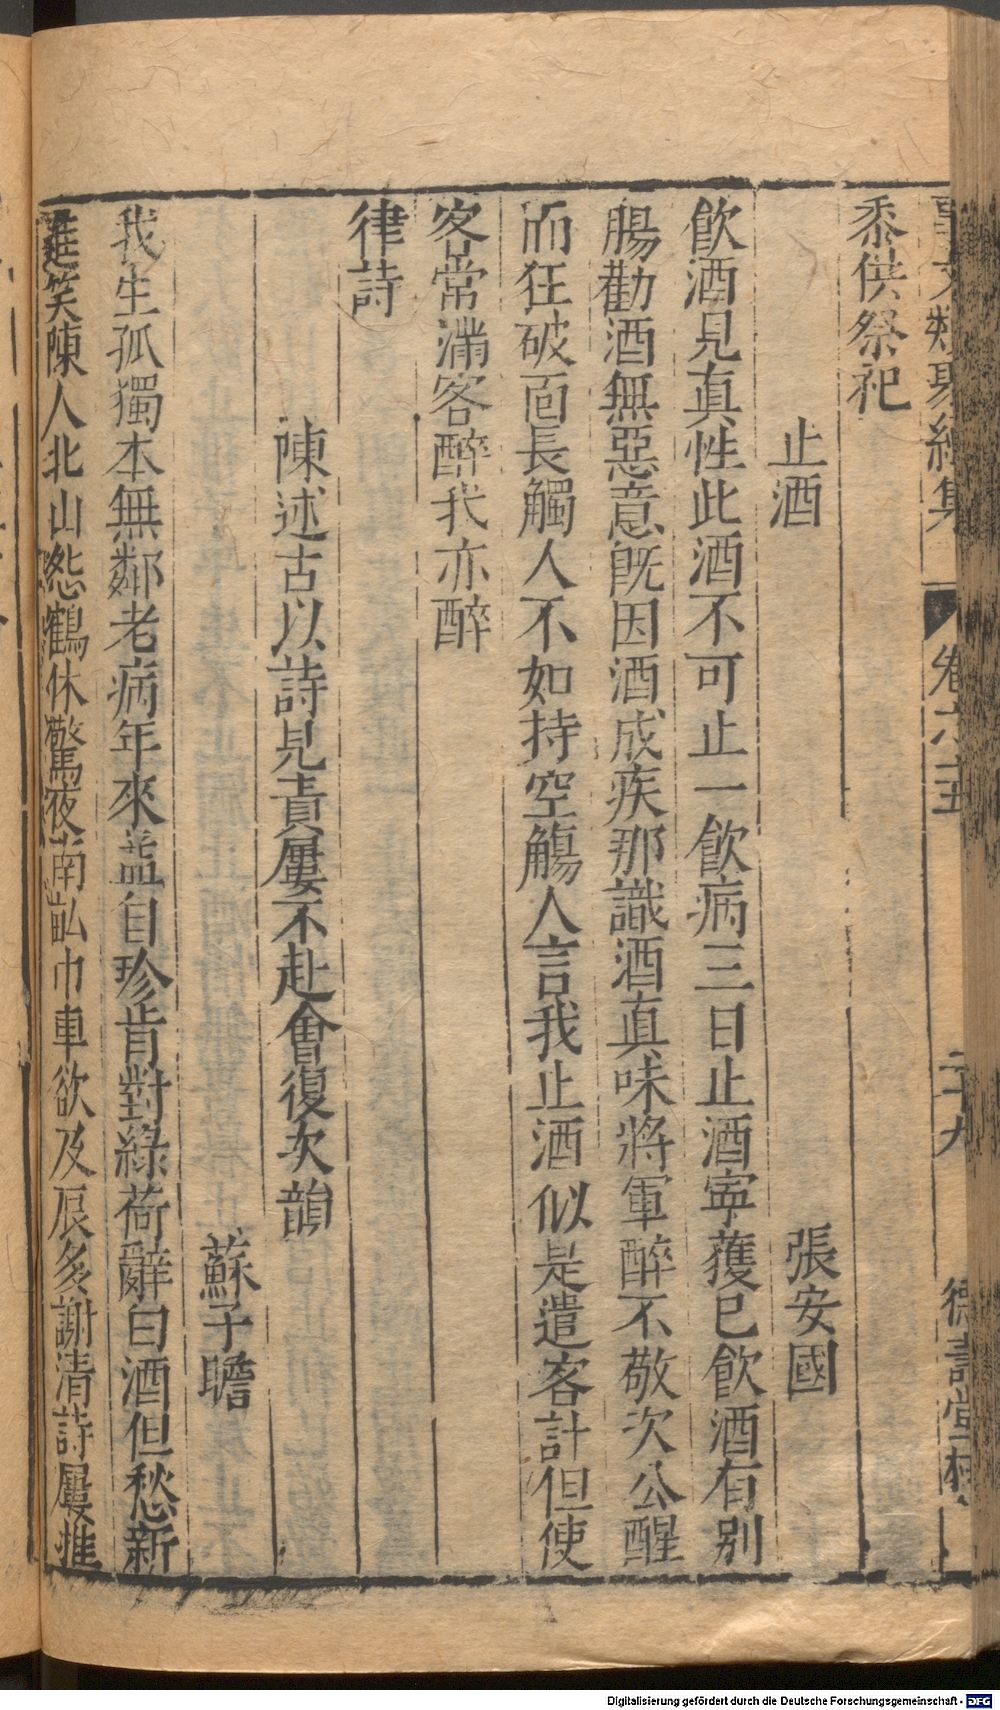 事文類聚續集 卷六十五 二十九 德壽堂梓
黍供祭祀
止酒 張安國
飲酒見真性此酒不可止一飲病三日止酒寧獲已飲酒有別
腸勸酒無惡意既因酒成疾那識酒真味將軍醉不敬次公醒
而狂破面長觸人不如持空觴人言我止酒似是遣客計但使
客常滿客醉我亦醉
律詩
陳述古以詩見責屢不赴會復次韻
蘇子瞻
我生孤獨本無鄰老病年來益自珍肯對綠荷辭白酒但愁新
進笑陳人北山怨鶴休驚夜南畝巾車欲及辰多謝清詩屢推
Digitalisierung gefördert durch die Deutsche Forschungsgemeinschaft - DFG